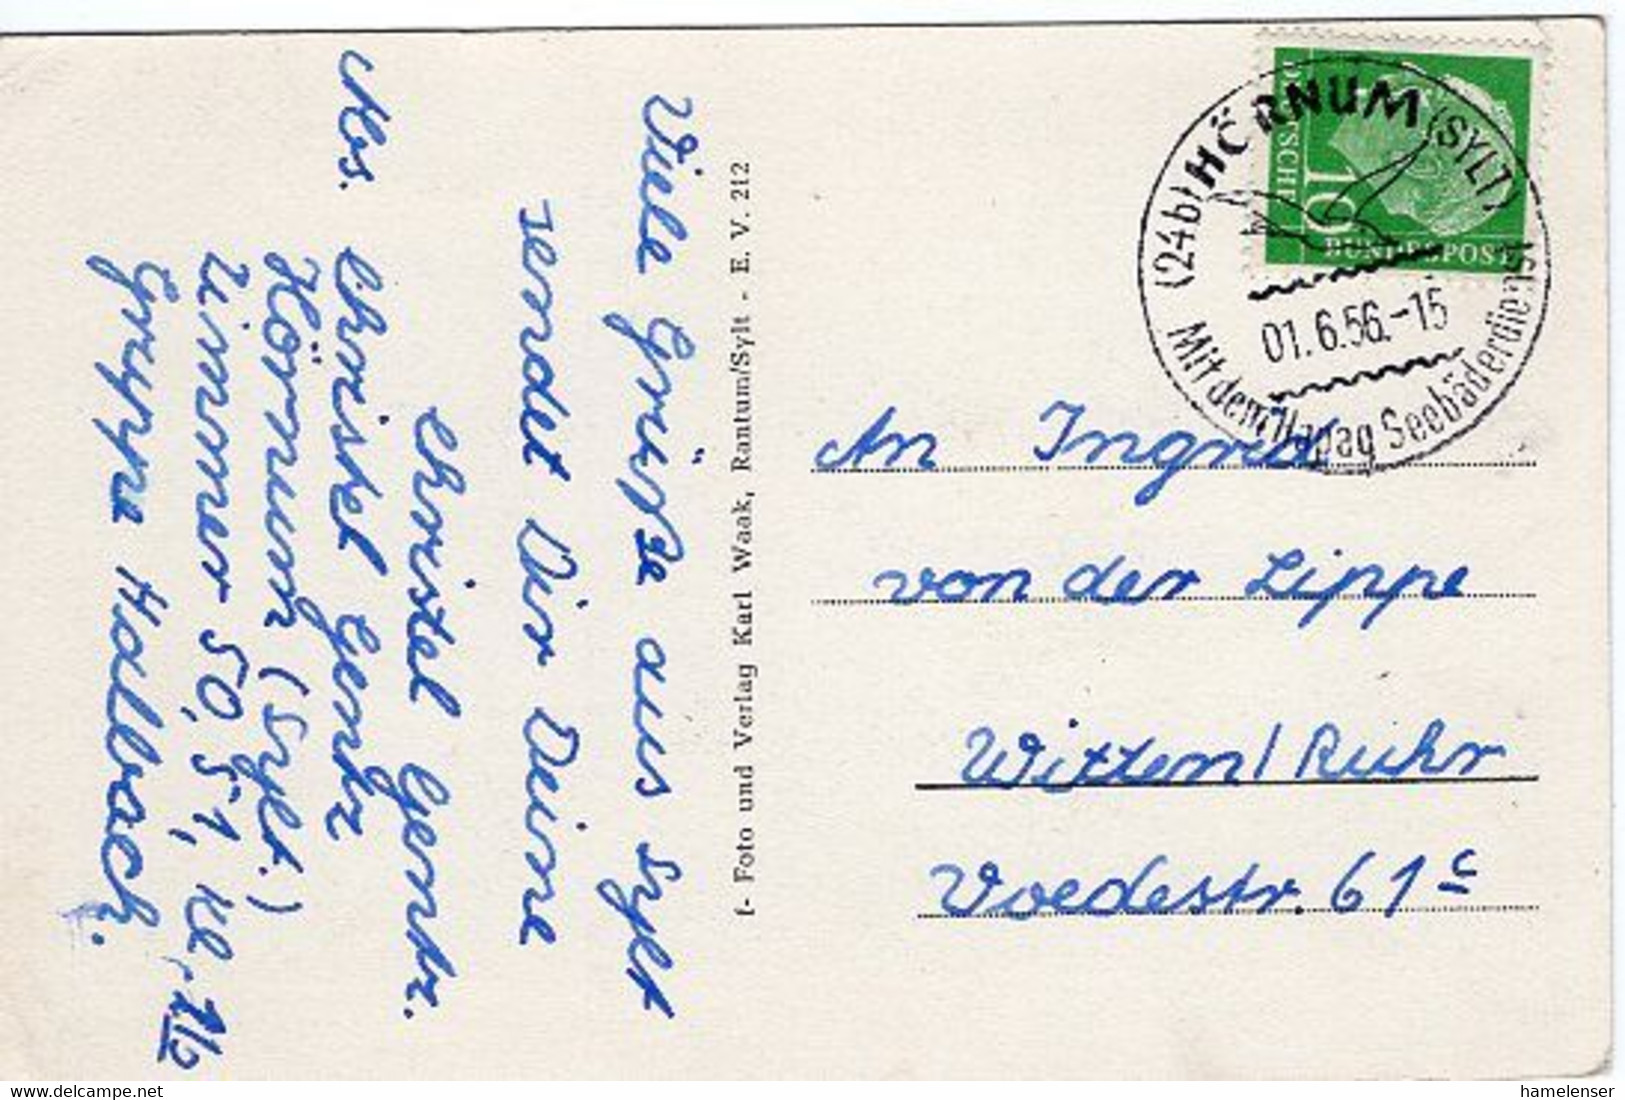 Viele Grüße aus Sylt
sendet Dir Deine
Christel Gentz.
Abs. Christel Gentz
Hörnum (Sylt.)
Zimmer 50, 51, Kl.
Gruppe Halbach.
f- Foto und Verlag Karl Waak, Rantum/Sylt - E. V. 212
DEUTSCHE
BUNDESPOST
10
(24b) HÖRNUM (SYLT)
01.6.56.-15
Mit dem Hapag Seebäderdienst
An Ingrid
von der Lippe
Witten/Ruhr
Voedestr. 61 c
delcampe.net
hamelenser